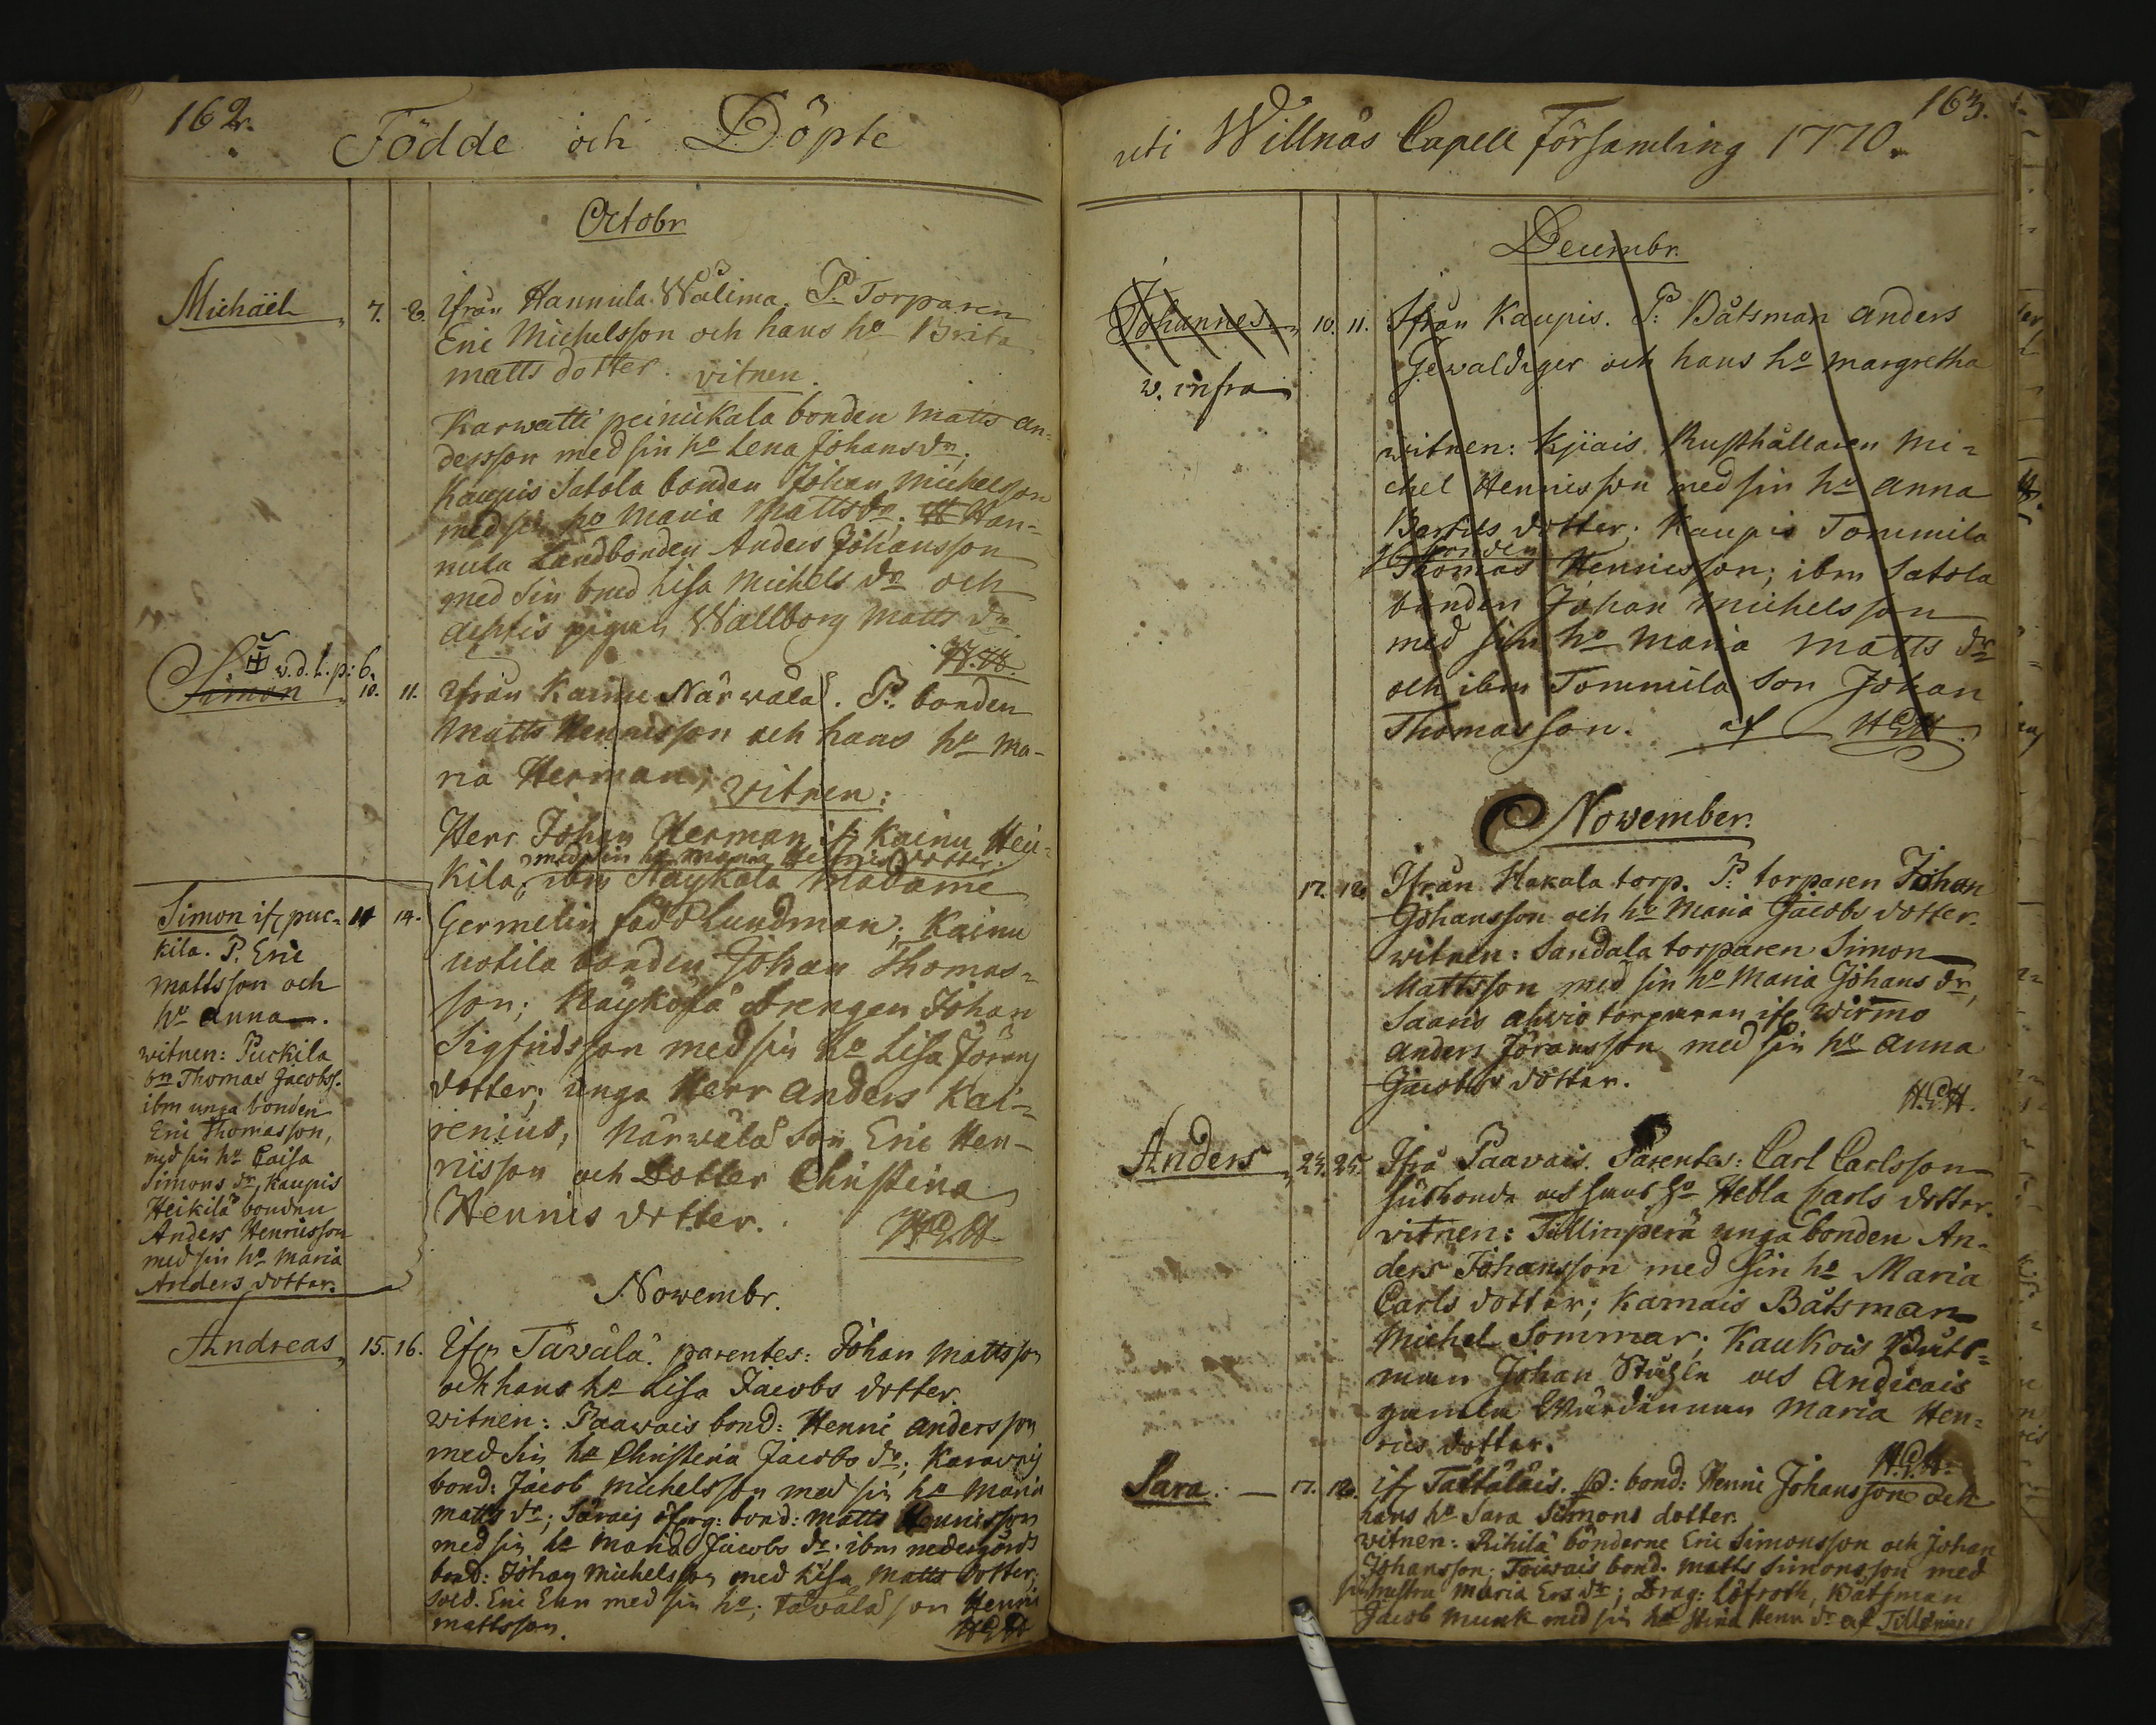 162.
Födde och Döpte
Octobr
Michäel 7. 8. Ifrån Hannula Wälima. P. Torparen
Eric Michelsson och hans ho Brita
matts dotter. vitnen.
Karwatti peinikala bonden Matts an=
dersson med sin ho Lena Johans dr,
Kaupis Satola bonden Johan Michelsson
med sin ho Maria Mattsdr. Han=
nula Landbonden Anders Johansson
med sin Lisa Michels dr och
pigan Wallborg Matts dr
v.d.l.p: 6.
Simon 10. 11. Ifrån Kainu Närwälä. P. bonden
Matts Hennisson och hans ho Ma-
ria Herman; witnen:
Herr Johan Herman if Kainu Hei=
med sin ho Maria Hennis dotter;
kilä, ibm Näykälä Madame
Germelin född Lundman; Kainu
uotila bonden Johan Thomas=
son; Näykälä drengen Johan
Sigfridsson med sin ho Lisa Jörans
dotter; unga Herr Anders Kai=
renius, Närwälä son Eric Hen-
nisson och Dotter Christina
Hennis dotter.
HEH
Simon if puc= 14 14.
kila. P. Eric
mattsson och
ho Anna.
witnen: Puckila
bn Thomas Jacobss.
ibm unga bonden
Eric Thomasson,
med sin ho Caisa
Simons dr, Kaupis
Heikilä bonden
Anders Henricsson
med sin ho Maria
Anders dotter.
Novembr.
Andreas 15. 16. Ifrn Täwälä. parentes: Johan Mattsson
och hans ho Lisa Jacobs dotter.
witnen: Paawais bond: Henric andersson
med sin ho Christina Jacobs dr;
bond: Jacob Michelsson med sin ho Maria
matts dr; bond: Matts Hennisson
med sin ho Maria Jacobs dr. ibm nedergårds
bond: Johan Michelsson med Lisa Matts dotter;
sold. Eric Ekn med sin ho; Täwälä son Henric
mattsson.
HEH
163.
uti Willnäs Capell Församling 1770.
Decembr.
Johannes 10. 11. Ifrån Kaupis. P: Båtsman Anders
v. infra
Gewaldiger och hans ho margretha
witnen: Kjiais Rusthållaren Mi=
chel Hennisson med sin ho Anna
Bertils dotter; Kaupis Tommila
bonden
Thomas Hennisson; ibm Satola
bonden Johan Michelsson
med sin ho Maria Matts dr
och ibm Tommila son Johan
Thomasson. af HEH.
November.
17. 18. Ifrån Hakala torp. P: torparen Johan
Johansson och ho Maria Jacobs dotter.
witnen: Sandala torparen Simon
Mattsson med sin ho Maria Johans dr,
Saaris ahvio torparen if Wirmo
Anders Jöransson med sin ho Anna
Jacobs dotter.
HEH.
Anders 24. 25. Ifrå Paavais. Parentes: Carl Carlsson
och hans ho Hebla Carls dotter.
witnen: Tillinperä unga bonden An=
ders Johansson med sin ho Maria
Carls dotter; Karnais Båtsman
Michel Sommar; Kaukois Båts=
man Johan och Andicais
gamla Wärdinnan Maria Hen=
rics dotter.
HEH.
Sara. — 17. 18. if Tattalais. P: bond: Henric Johansson och
hans ho Sara Simons dotter.
witnen: Rihilä bönderne Eric Simonsson och Johan
Johansson; Toiwais bond. Matts Simonsson med
sin hustru Maria Ers dr; Drag: Löfroth, Båtsman
Jacob Munk med sin ho Stina Henr dr af